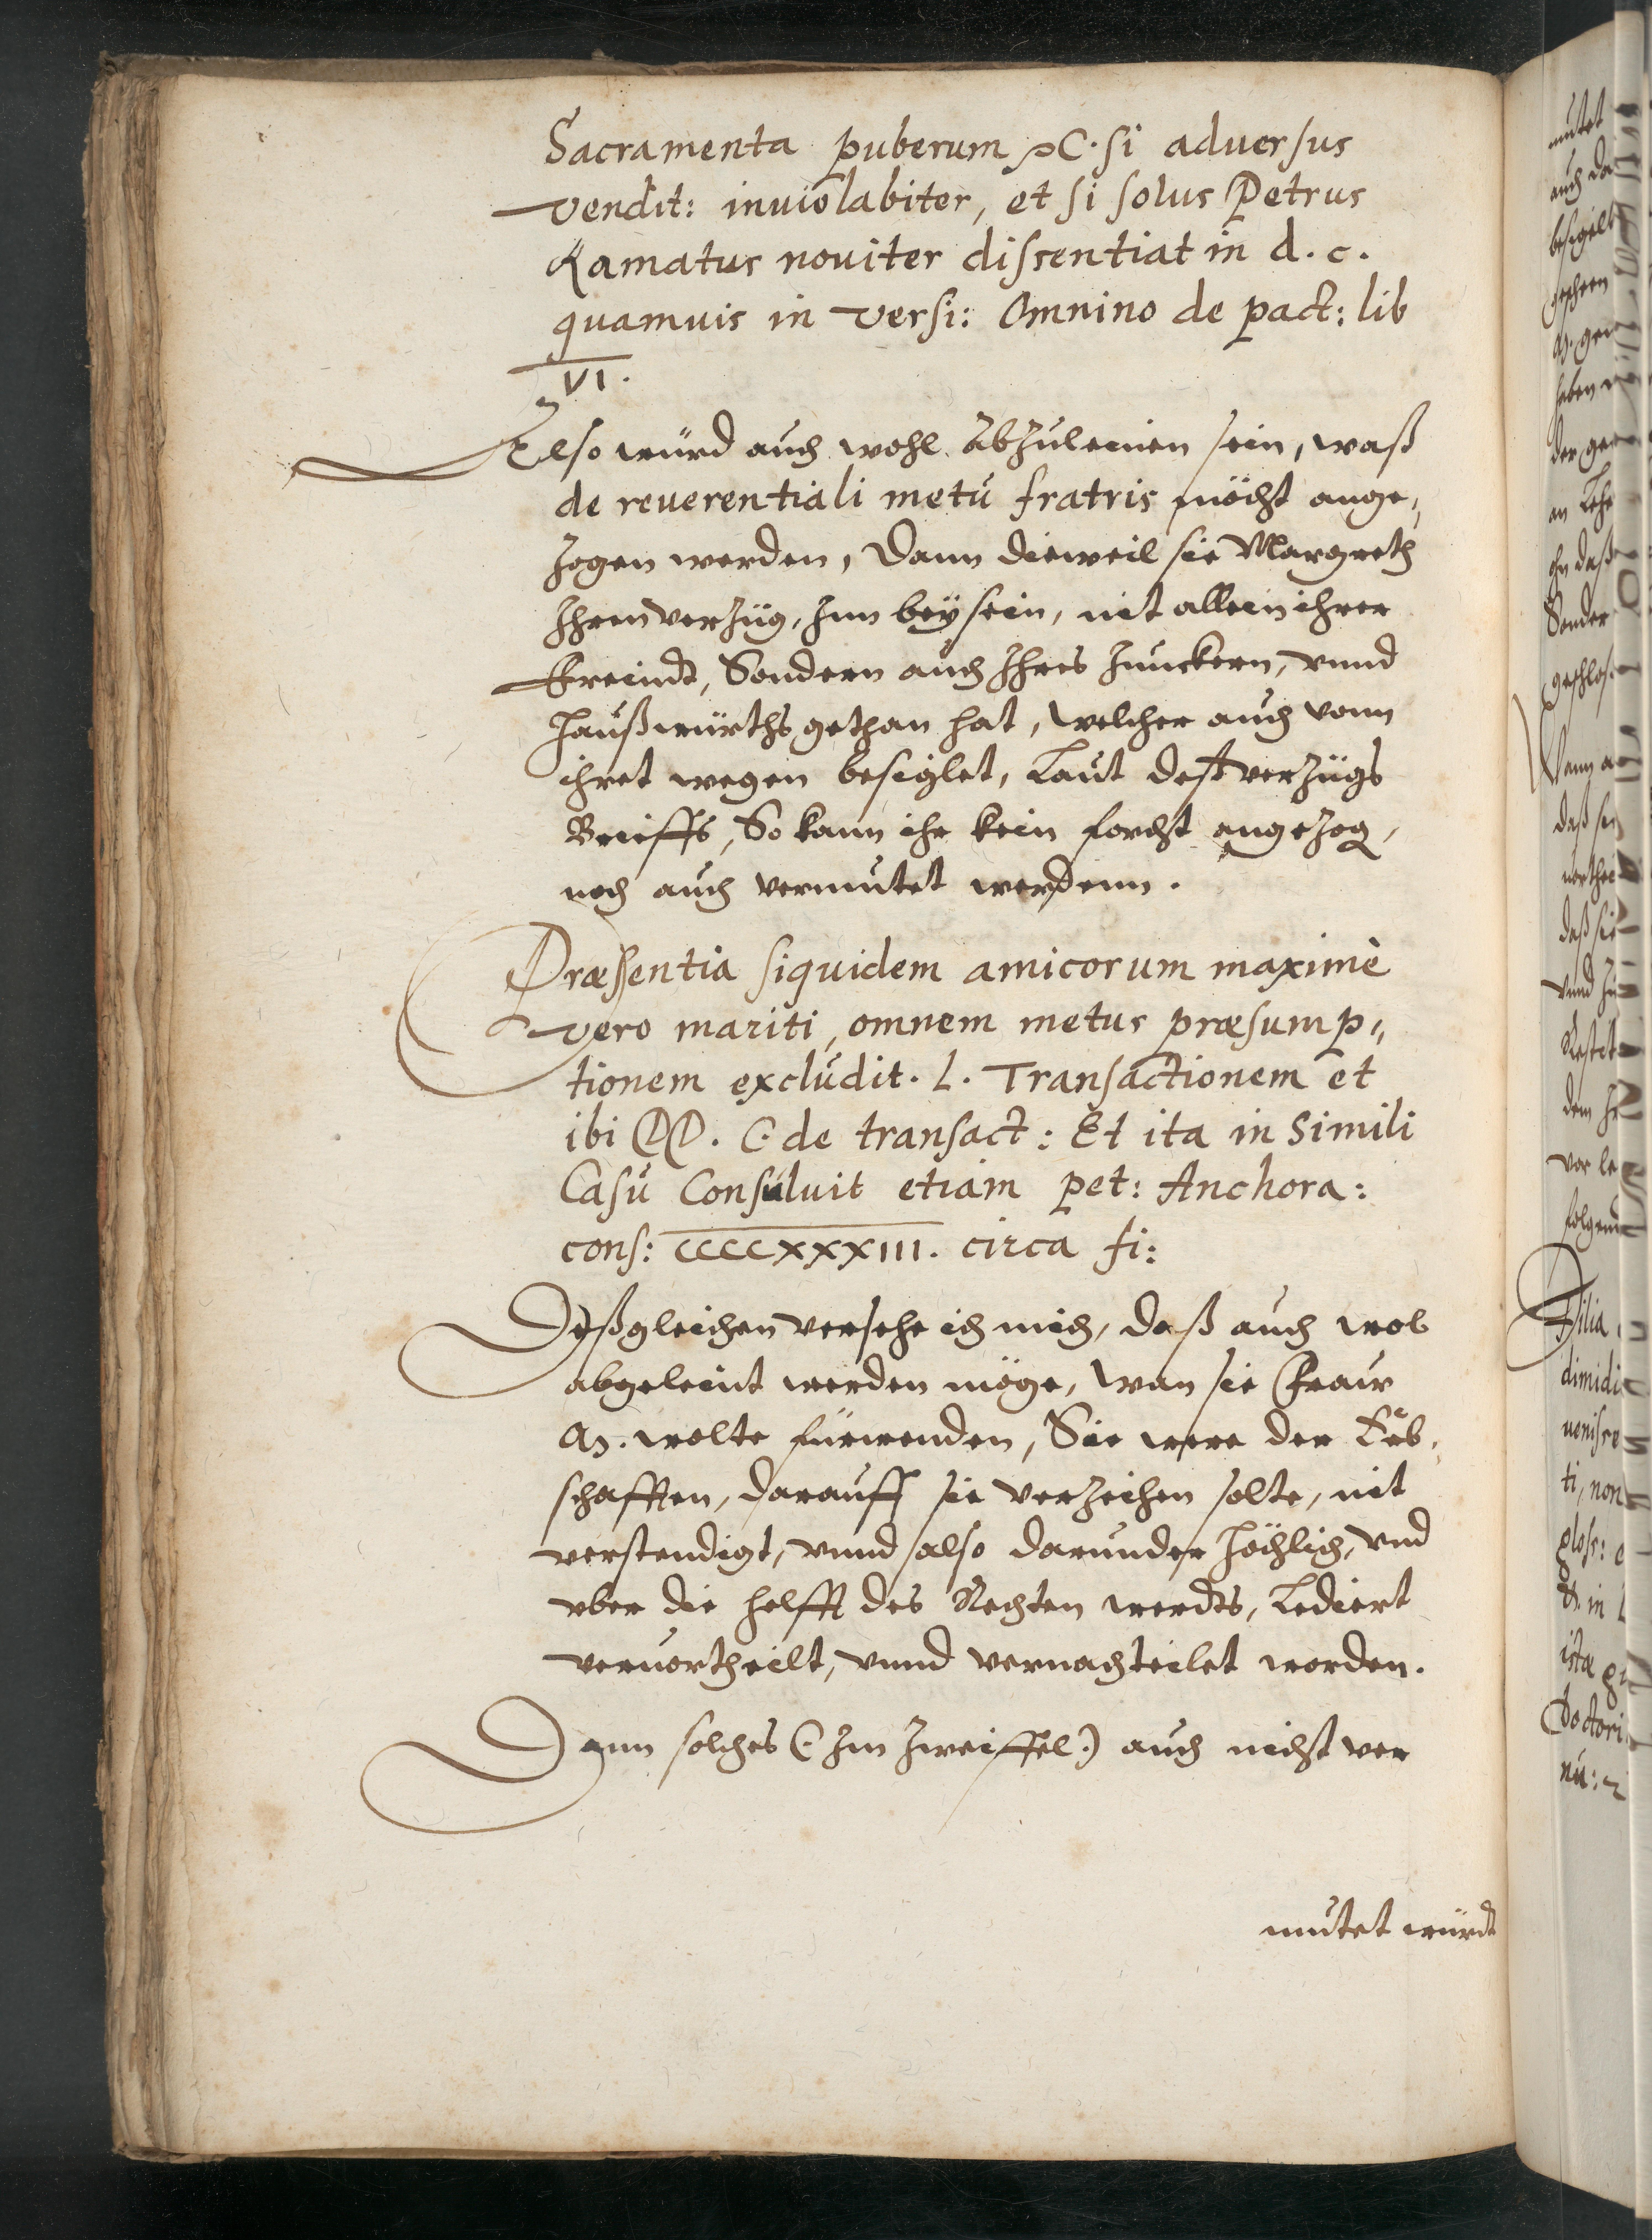 Sacramenta puberum C. si aduersus
vendit: inuiolabiter, et si solus Petrus
Ramatus nouiter dissentiat in d. c.
quamuis in versi: Omnino de pact: lib
VI.
Also würd auch wohl Abzuleinen sein, waß
de reuerentiali metu fratris möcht ange,,
zogen werden, Dann dieweil sie Margreth
Ihren verzüg, Inn beysein, nit allein ihrer
Freindt, Sondern auch Ihres Junckern, vnnd
Haußwürths gethan hat, welcher auch vonn
ihret wegen besiglet, Laut deß verzügs
Brieffs, So kann ihr kein forcht angezog,
noch auch vermutet werdenn.
Præsentia siquidem amicorum maximè
vero mariti, omnem metus præsump,,
tionem excludit. L. Transactionem et
ibi DD. C. de transact: Et ita in Simili
Casu Consuluit etiam pet: Anchora:
cons: CCCCXXXIII. circa fi:
Deßgleichen versehe ich mich, daß auch wol
abgeleint werden möge, wan sie Fraw
M. wolte fürwenden, Sie were der Erb,
schafften, darauff sie verzeihen solte, nit
verstendigt, vnnd also darunder höchlich, vnd
vber die helfft des Rechten werdts, Lediert
veruortheilt, vnnd vernachteilet worden.
Dann solches (: Im Zweiffel :) auch nicht ver
mutet würdt
mutet
auch da
besigelt
haben
der ge
an Lehe
daß
Sonder
Wann a
daß sie
vnnd
dem
vor
folgend
Filia
dimidi
ti, non
glos:
in L
istæ
Doctori
nu: 2